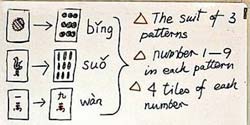 bǐng
suǒ
一
萬
九
萬
wàn
△ The suit of 3
patterns
△ number 1–9
in each pattern
△ 4 tiles of each
number